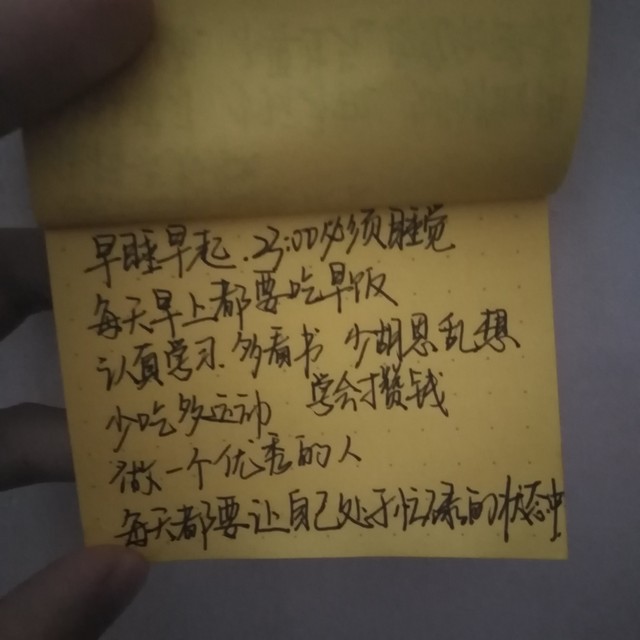 早睡早起.23:00必须睡觉
每天早上都要吃早饭
认真学习.多看书 少胡思乱想
少吃多运动 学会攒钱
做一个优秀的人
每天都要让自己处于忙碌的状态中